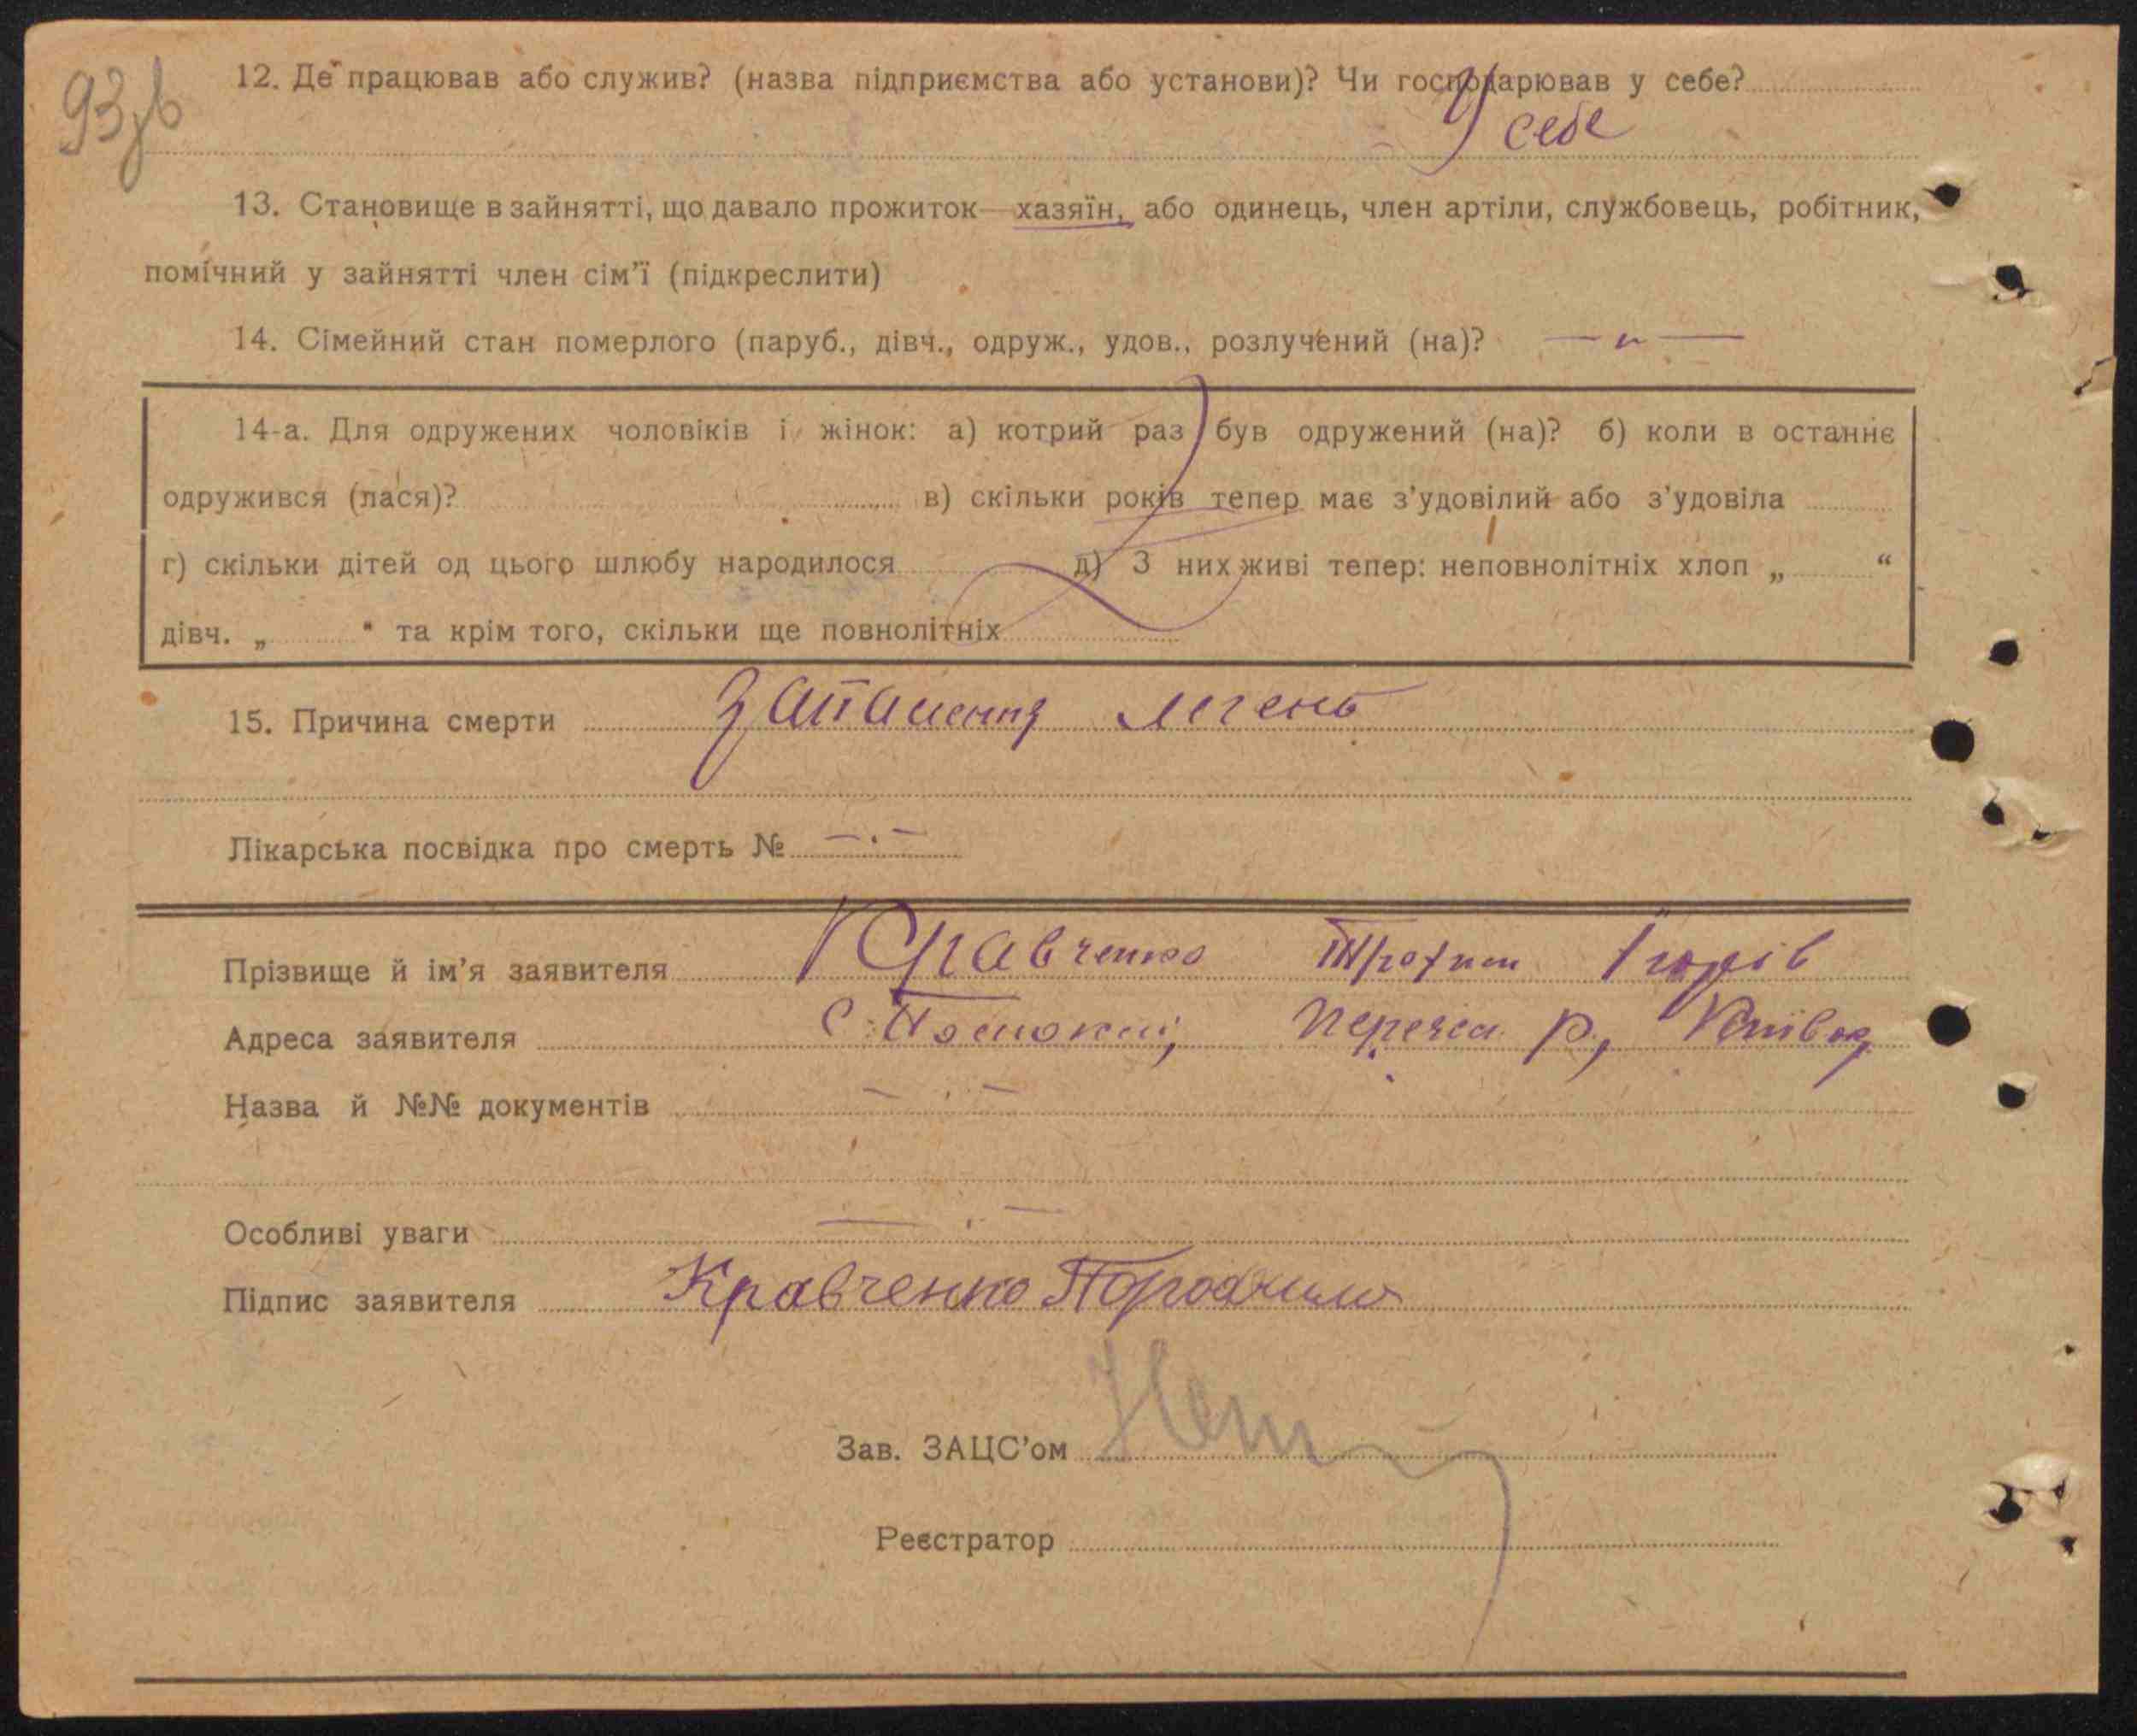 93зв
12. Де працював або служив? (назва підприємства або установи)? Чи господарював у себе?
У себе
13. Становище в зайнятті, що давало прожиток—хазяїн, або одинець, член артіли, службовець, робітник,
помічний у зайнятті член сім’ї (підкреслити)
14. Сімейний стан померлого (паруб., дівч., одруж., удов., розлучений (на)? — „ —
14-а. Для одружених чоловіків і жінок: а) котрий раз був одружений (на)? б) коли в останнє
одружився (лася)? в) скільки років тепер має з’удовілий або з’удовіла
г) скільки дітей од цього шлюбу народилося д) З них живі тепер: неповнолітніх хлоп „ “
дівч. „ “ та крім того, скільки ще повнолітніх
15. Причина смерти Запалення легень
Лікарська посвідка про смерть № — . —
Прізвище й ім’я заявителя Кравченко Трохим
Адреса заявителя с. р,
Назва й №№ документів — . —
Особливі уваги — . —
Підпис заявителя Кравченко
Зав. ЗАЦС’ом
Реєстратор